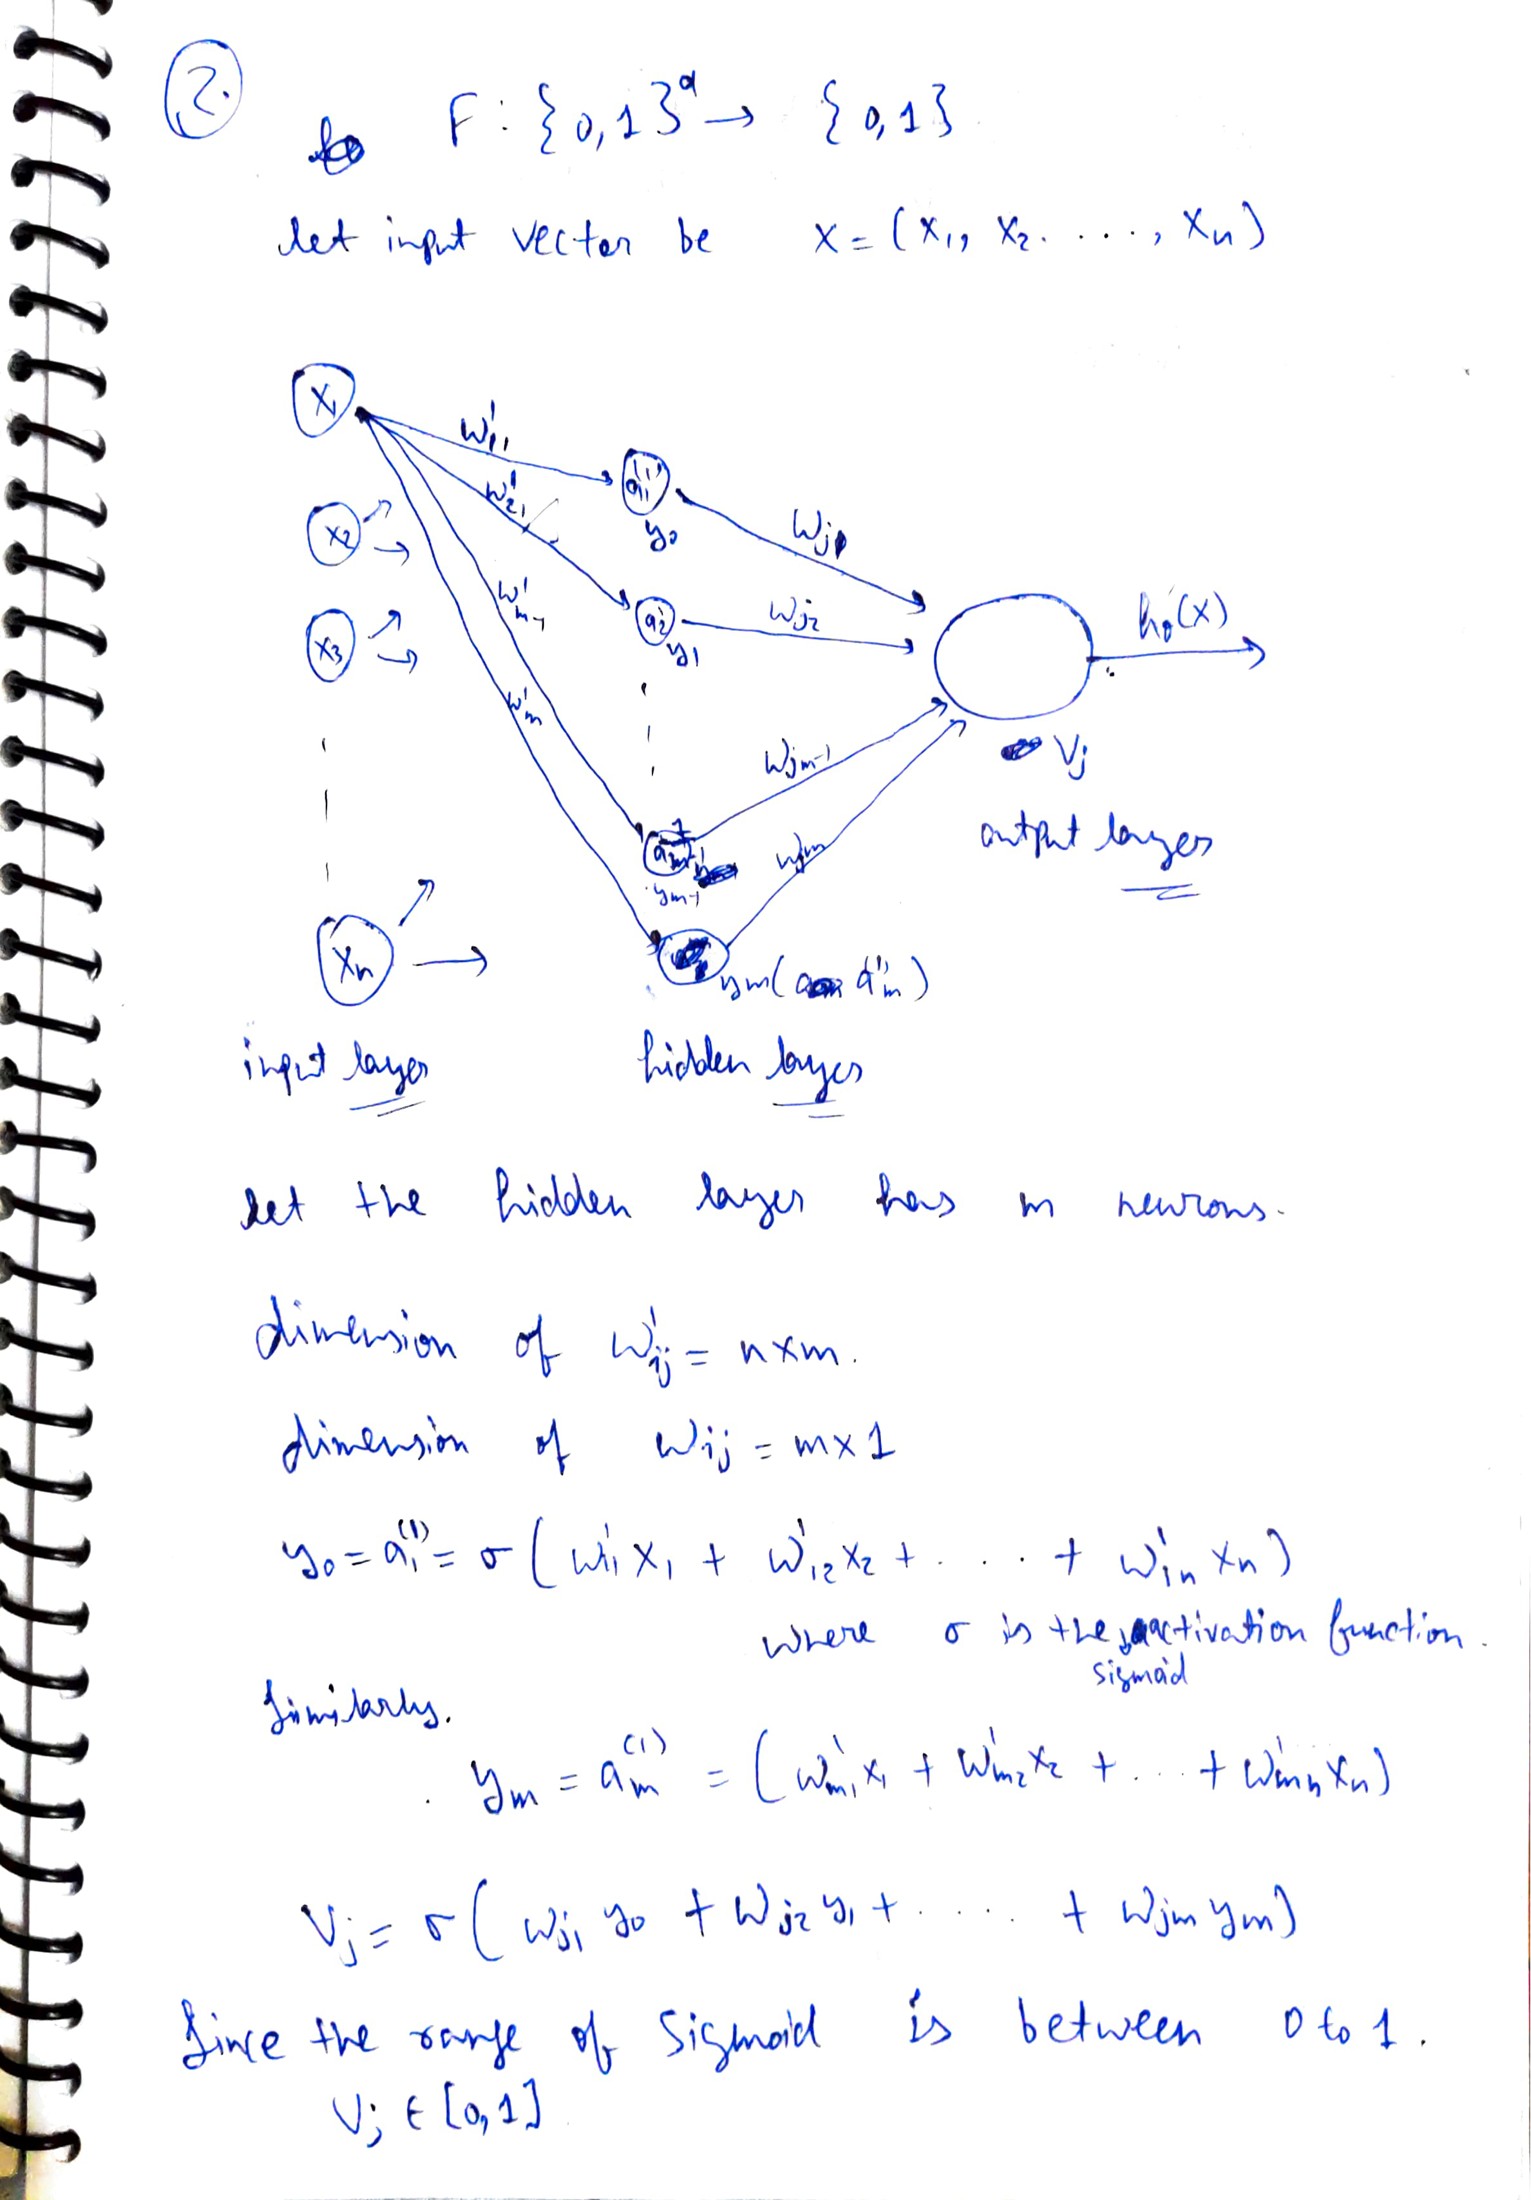 2.
F : {0,1}^d → {0,1}
let input vector be X = (X1, X2. . . . ., Xn)
X1
W'11
a'1
y0
Wj1
W'21
X2
W'm-1
a'2
y1
Wj2
h0(X)
X3
W'm
Vj
Wjm-1
output layer
ym-1
Wjm
Xn
ym( a'm )
input layer
hidden layer
let the hidden layer has m neurons.
dimension of W'ij = n×m.
dimension of Wij = m×1
y0 = a1^(1) = σ ( W'11 X1 + W'12 X2 + . . . + W'1n Xn )
where σ is the activation function.
sigmoid
Similarly.
ym = am^(1) = ( W'm1 X1 + W'm2 X2 + . . . + W'mn Xn )
Vj = σ ( Wj1 y0 + Wj2 y1 + . . . . . + Wjm ym )
Since the range of Sigmoid is between 0 to 1.
Vj ∈ [0,1]